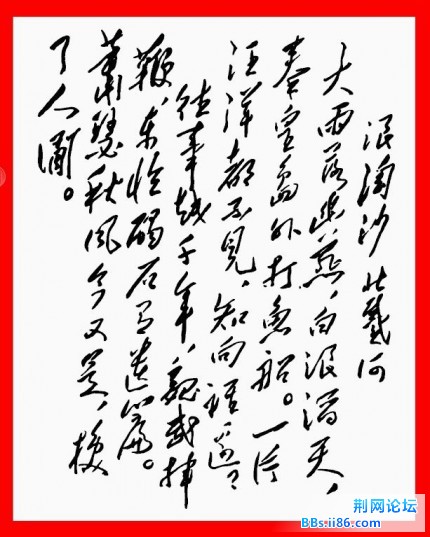 浪淘沙 北戴河
大雨落幽燕,白浪滔天,
秦皇島外打魚船。一片
汪洋都不見,知向誰邊?
往事越千年,魏武揮
鞭,東臨碣石有遺篇。
蕭瑟秋風今又是,換
了人間。
荆网论坛
BBs.ii86.com